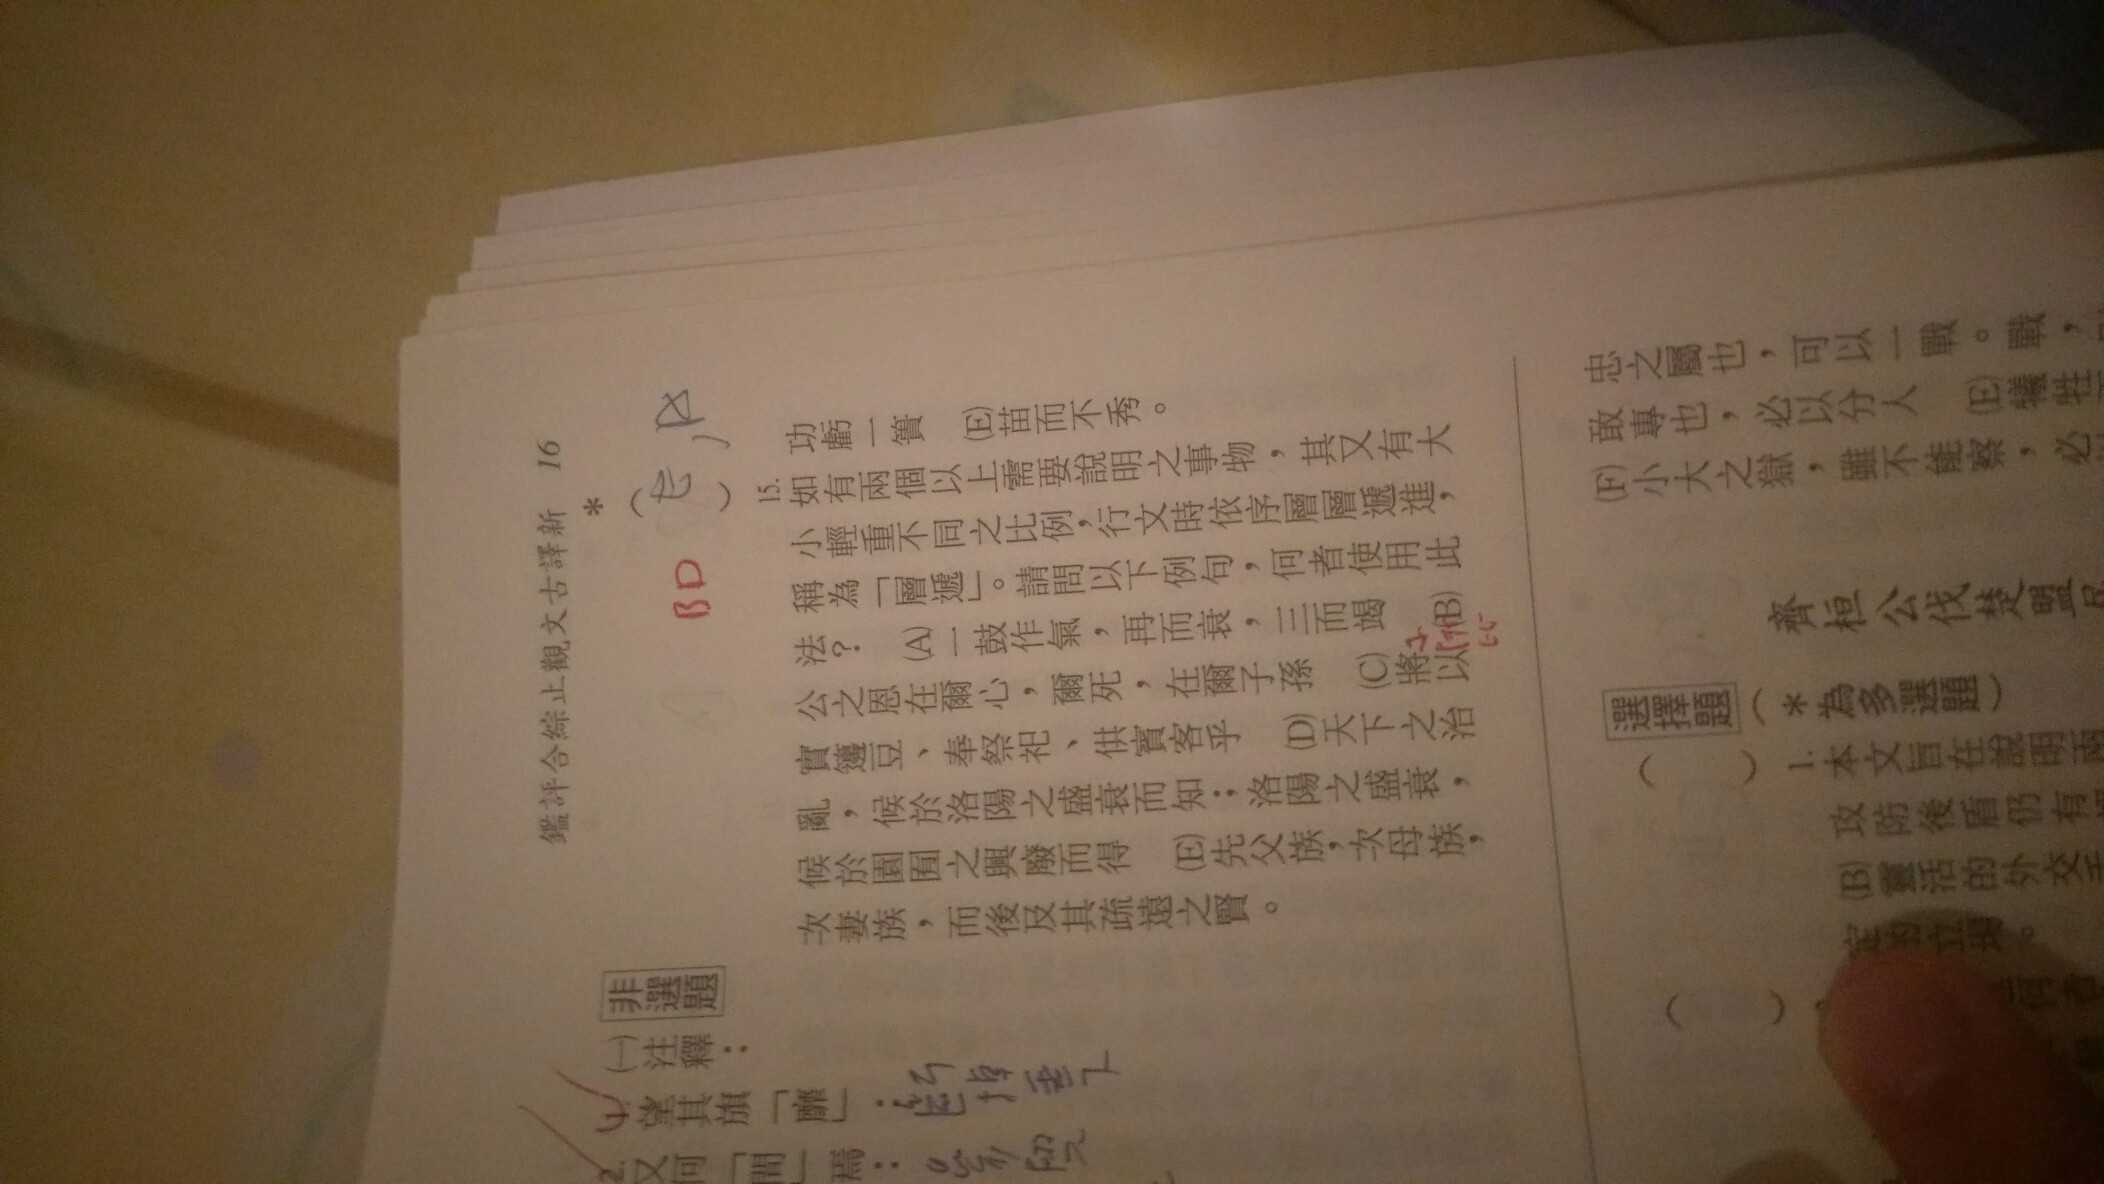 新譯古文觀止綜合評鑑 16
*
(        )
BD
功虧一簣　(E)苗而不秀。
15.如有兩個以上需要說明之事物，其又有大
小輕重不同之比例，行文時依序層層遞進，
稱為「層遞」。請問以下例句，何者使用此
法？　(A)一鼓作氣，再而衰，三而竭　(B)
公之恩在爾心，爾死，在爾子孫　(C)將以
實籩豆、奉祭祀、供賓客乎　(D)天下之治
亂，候於洛陽之盛衰而知；洛陽之盛衰，
候於園囿之興廢而得　(E)先父族，次母族，
次妻族，而後及其疏遠之賢。
非選題
(一)注釋：
望其旗「靡」：
2.又何「間」焉：
忠之屬也，可以一戰。戰，
敢專也，必以分人　(E)犧牲
(F)小大之獄，雖不能察，必
齊桓公伐楚盟
選擇題
(＊為多選題)
(        )
1.本文旨在說明兩
攻防後盾仍有
(B)靈活的外交手
定的立場。
(        )